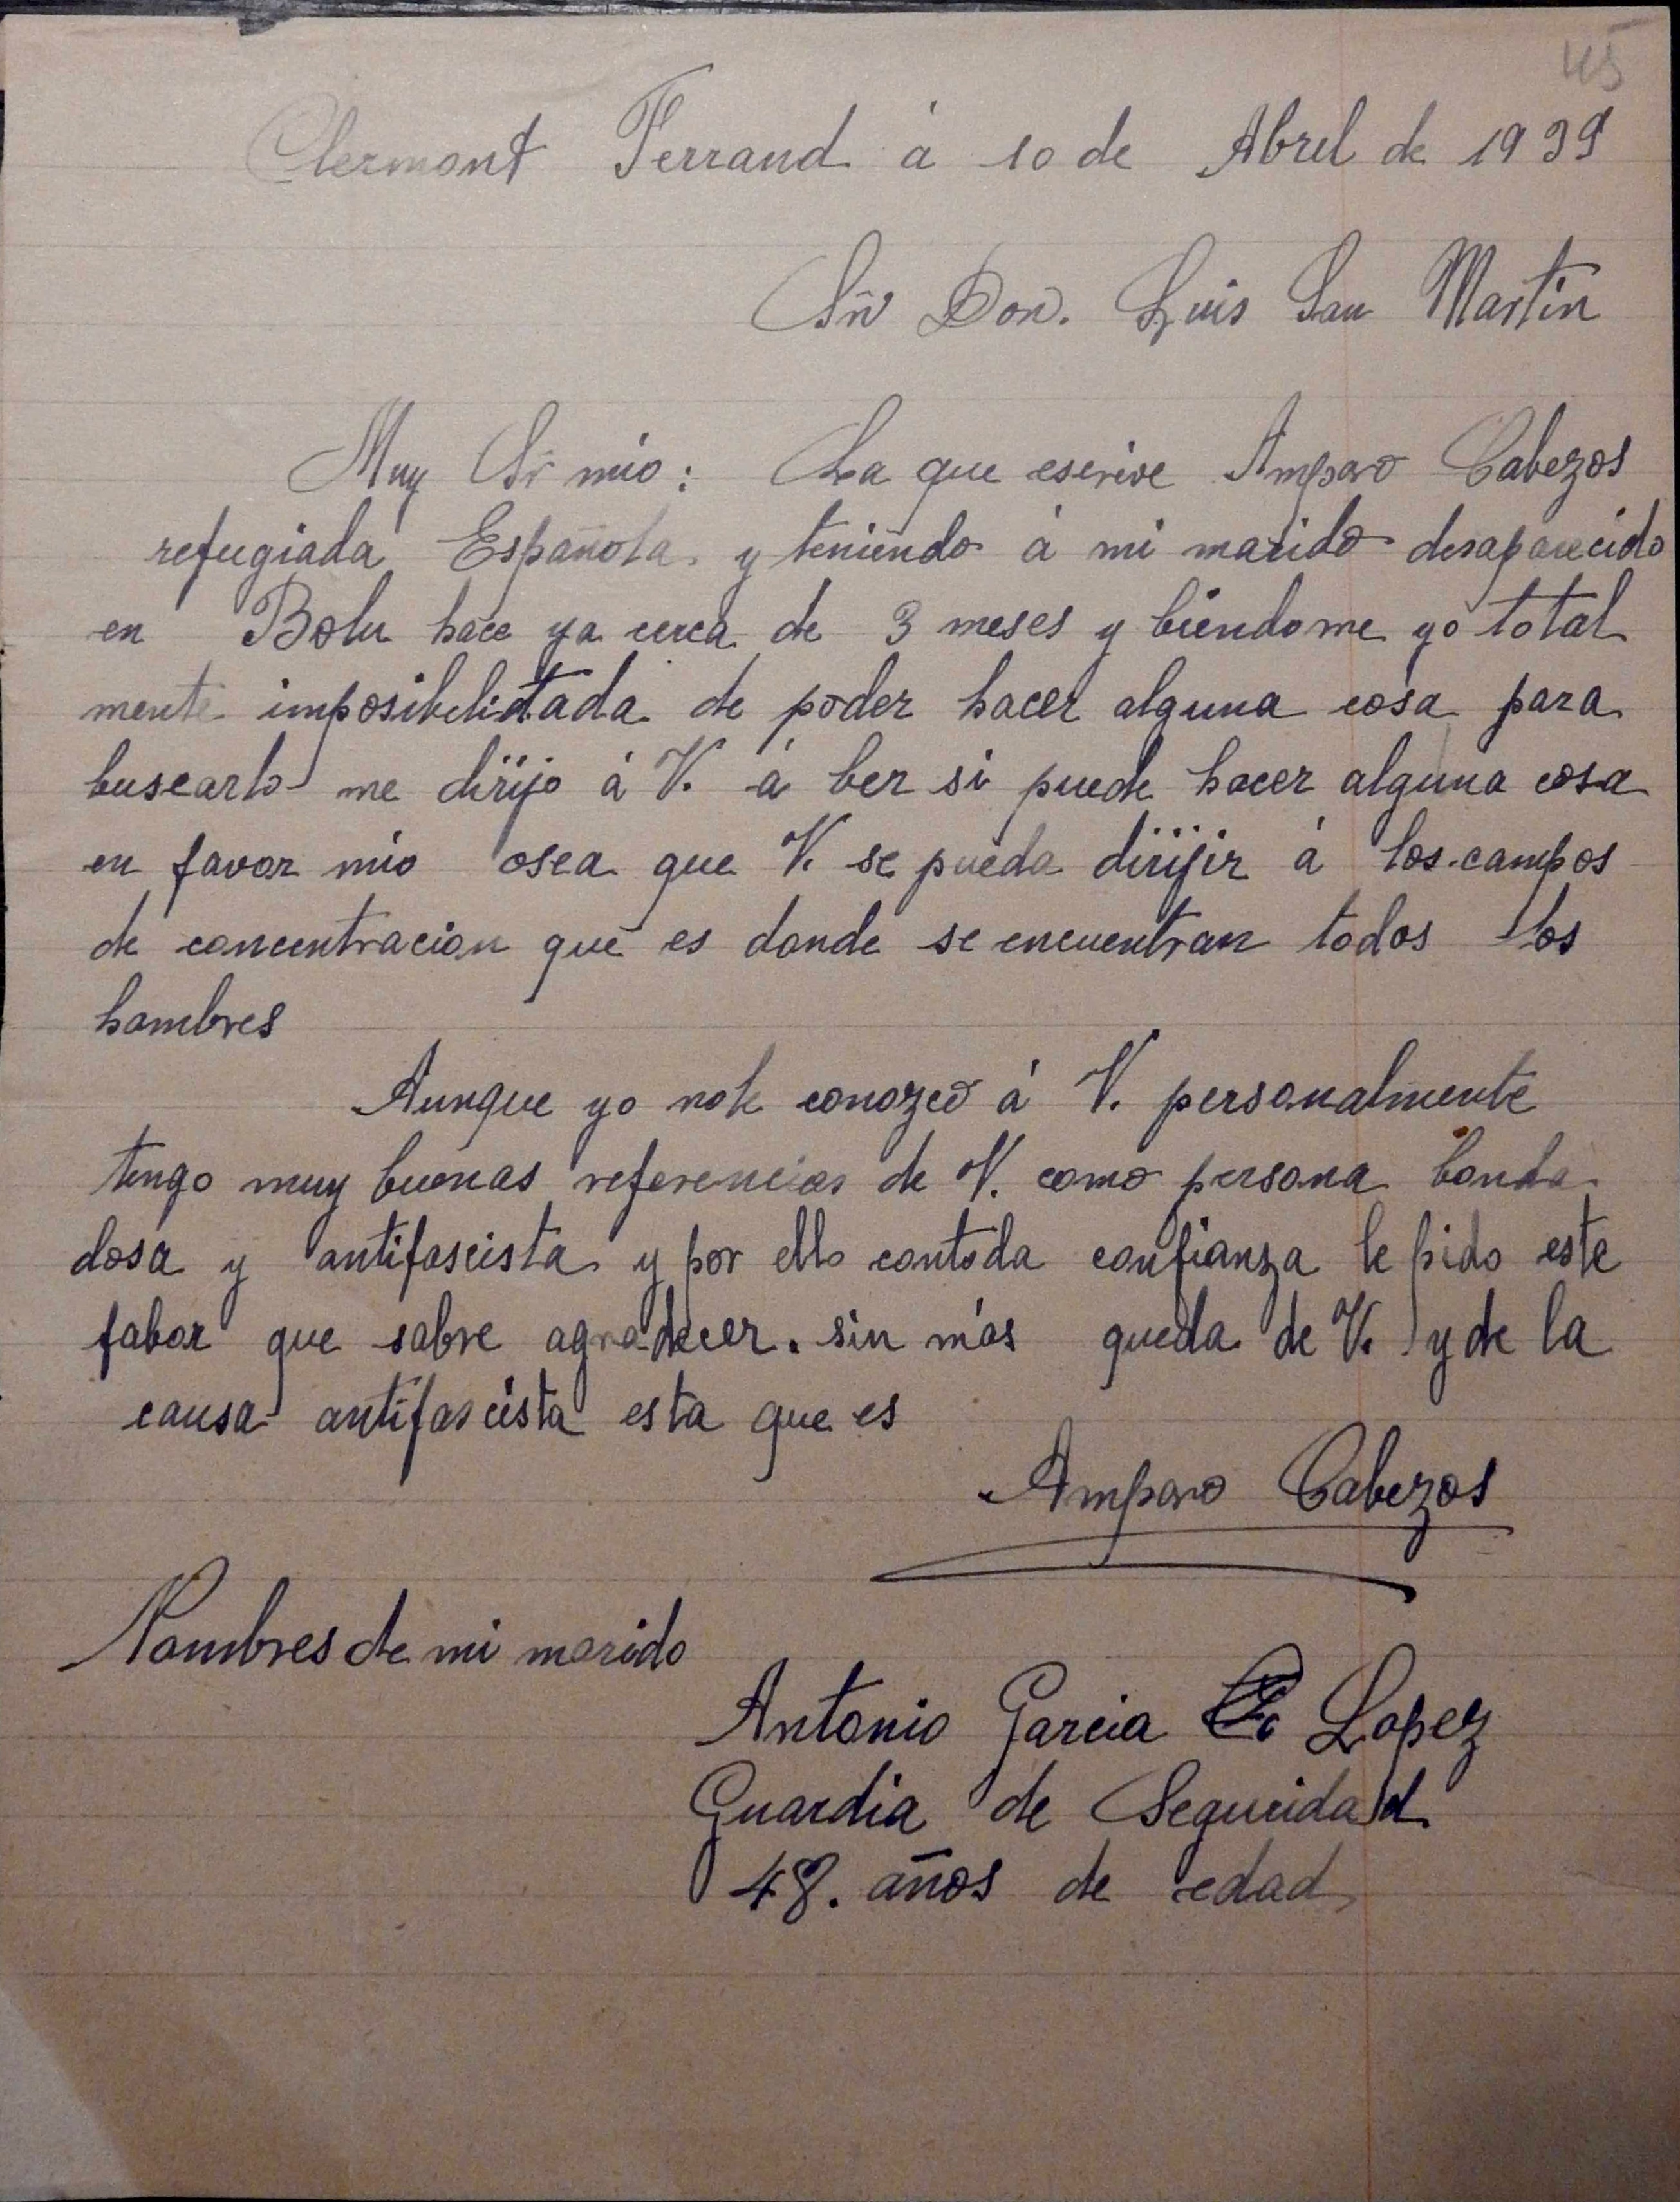 45
Clermont Ferrand á 10 de Abril de 1939
Sñr Don. Luis San Martin
Muy Sr mio: La que escrive Amparo Cabezos
refugiada Española y teniendo á mi marido desaparecido
en Bolu hace ya cerca de 3 meses y biendome yo total
mente imposibelitada de poder hacer alguna cosa para
buscarlo me dirijo á V. á ber si puede hacer alguna cosa
en favor mio osea que V. se pueda dirijir á los campos
de concentracion que es donde se encuentran todos los
hombres
Aunque yo no le conozco á V. personalmente
tengo muy buenas referencias de V. como persona bonda
dosa y antifascista y por ello con toda confianza le pido este
fabor que sabre agradecer. sin más queda de V. y de la
causa antifascista esta que es
Amparo Cabezos
Nombres de mi marido
Antonio Garcia Lopez
Guardia de Seguridad
48. años de edad